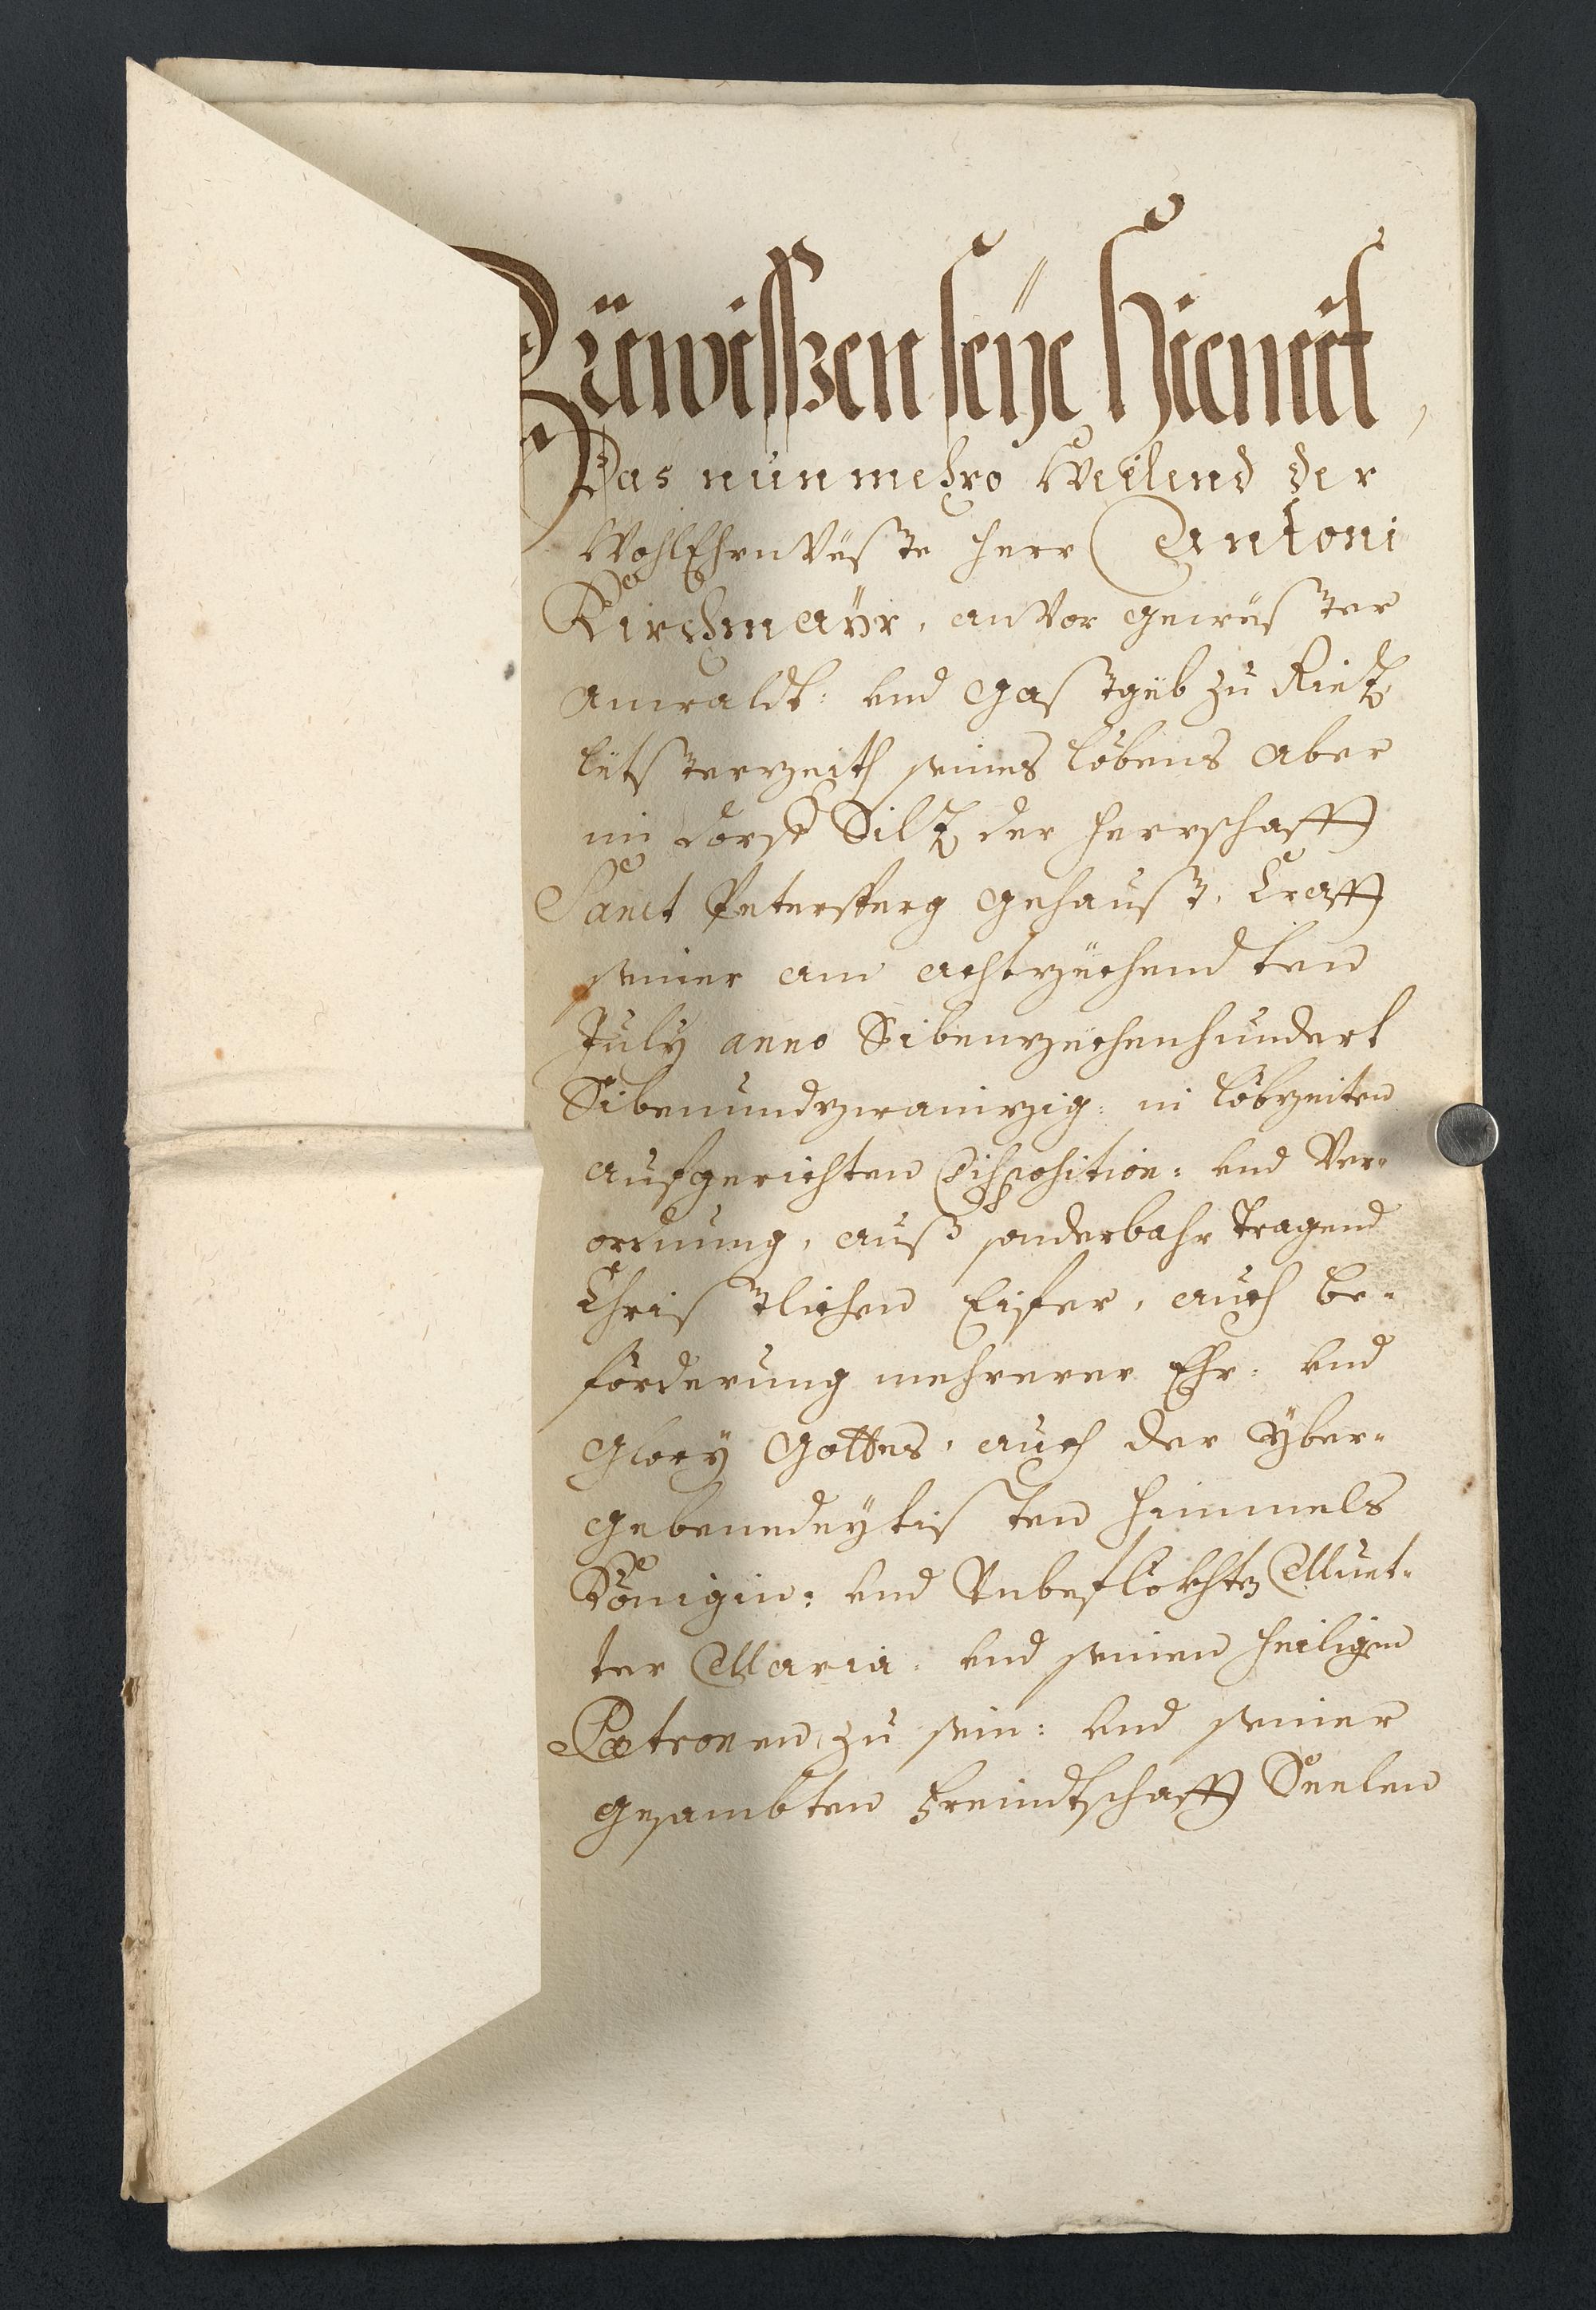 Zuwissen seÿe Hiemit,
Das nunmehro Weilend der
WohlEhrnVeste Herr Antoni
Kirchmaÿr, anVor gewester
Anwaldt: vnd Gastgeb zu Rietz,
letsterzeith seines lebens aber
im Dorf Silz der Herrschafft
Sanct Petersperg gehaust, Crafft
seiner am achtzechendten
July anno Sibenzechenhundert
Sibenundzwainzig: in lebzeiten
aufgerichten Disposition: vnd Ver-
ordnung, auß sonderbahr tragend
Christlichen Eifer, auch be-
förderung mehrerer Ehr: vnd
Glory Gottes, auch der Yber-
gebenedeytisten Himmels
Königin: vnd Vnbeflekhten Muet-
ter Maria, vnd seinen heiligen
Patronen, zu sein: vnd seiner
gesambten Freindtschafft Seelen